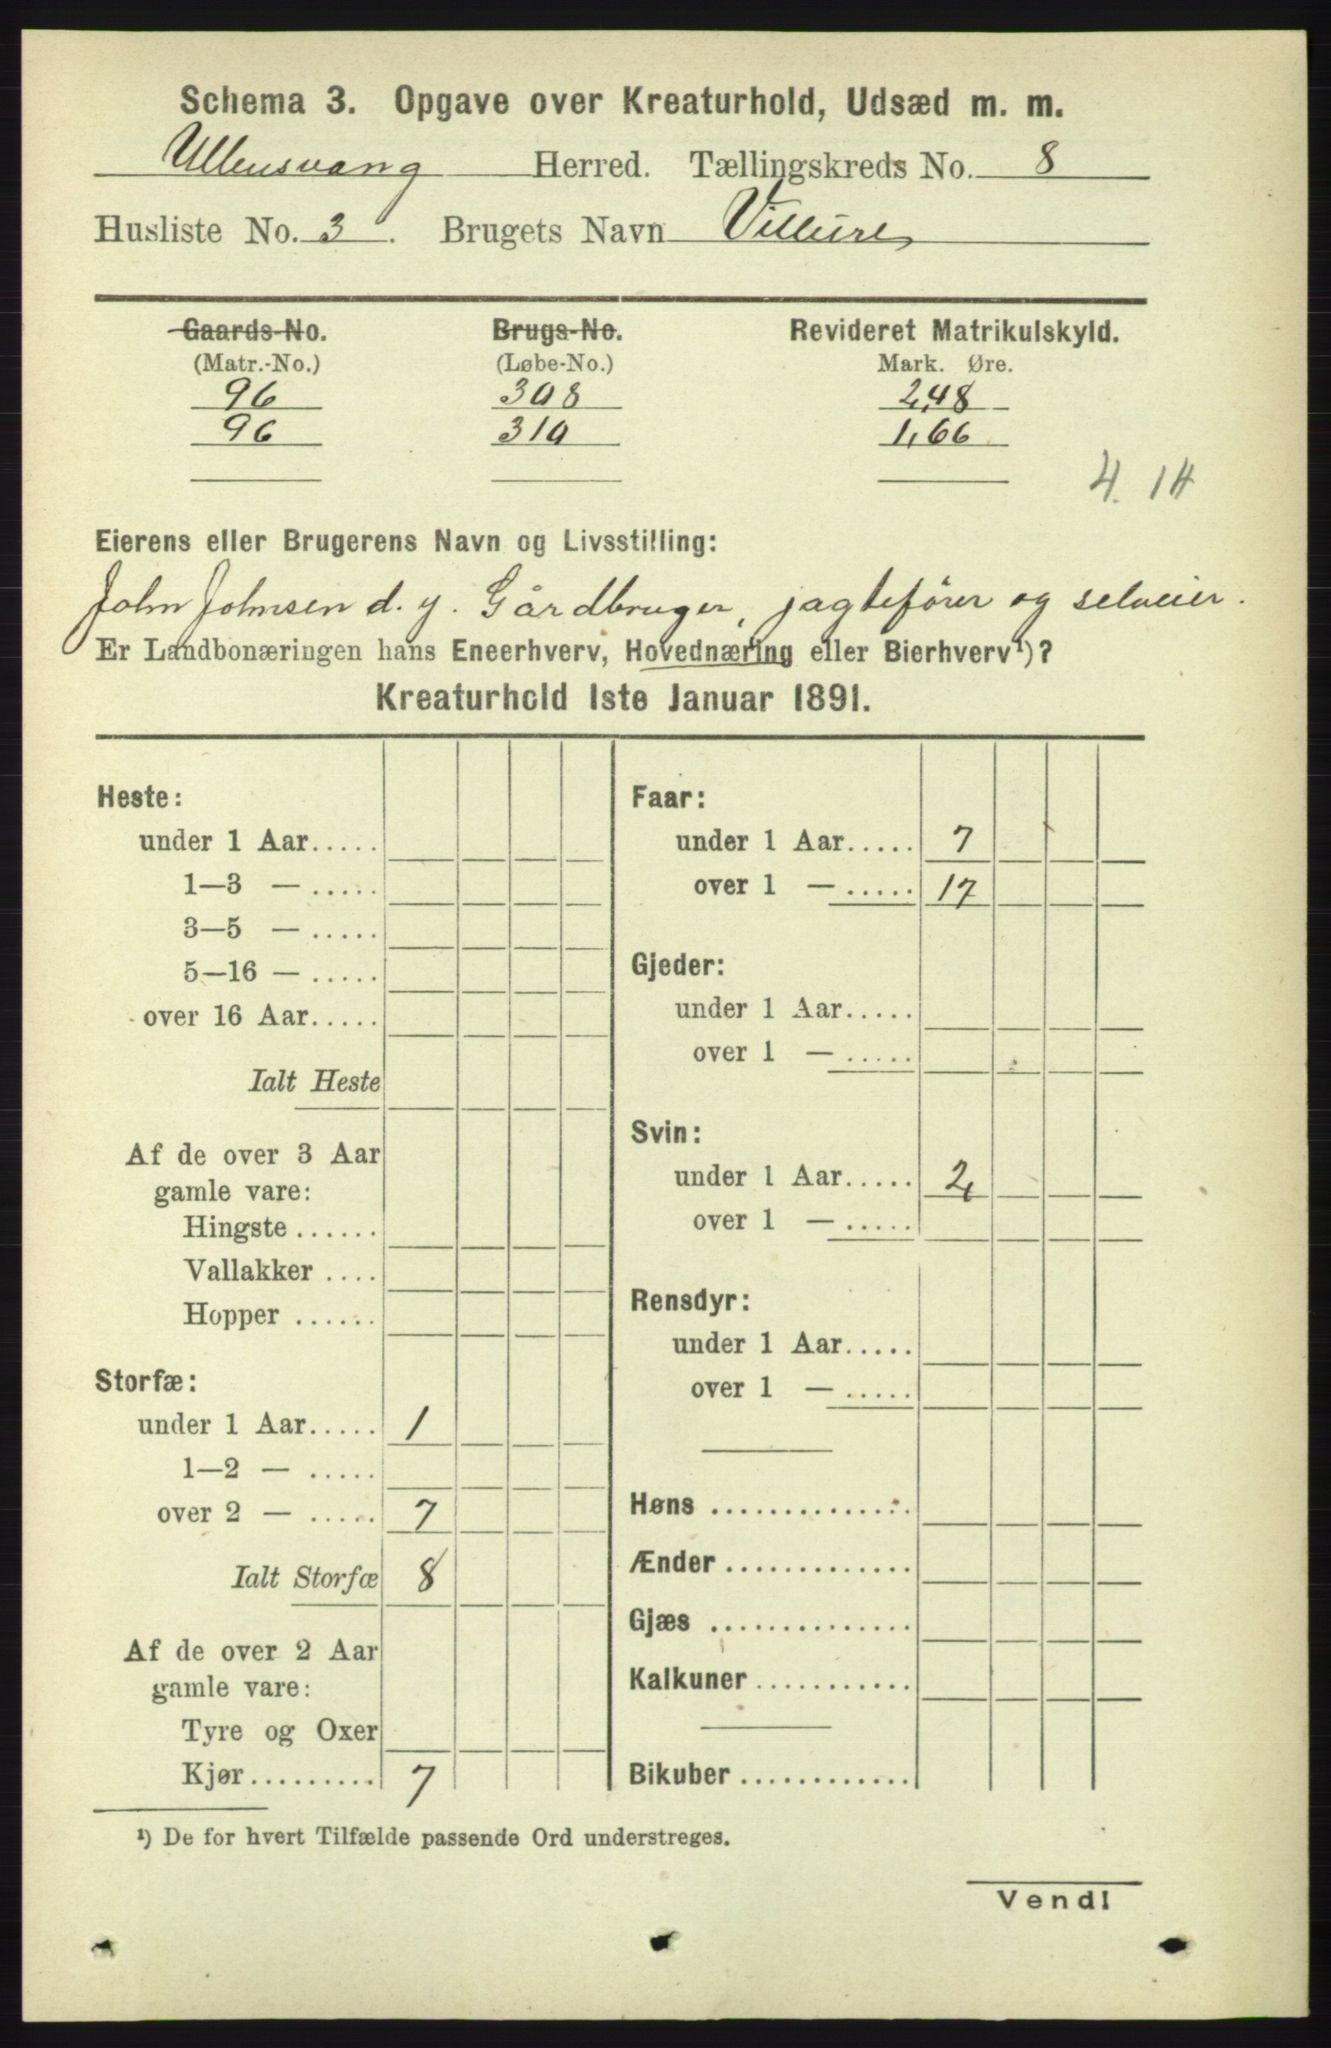 Schema 3. Opgave over Kreaturhold, Udsæd m. m.
Ullensvang Herred. Tællingskreds No. 8
Husliste No. 3. Brugets Navn Villure
Gaards-No. Brugs-No. Revideret Matrikulskyld.
(Matr.-No.) (Løbe-No.) Mark. Øre.
96 308 2,48
96 310 1,66
4.14
Eierens eller Brugerens Navn og Livsstilling:
John Johnsen d. y. Gårdbruger, jagtefører og selveier.
Er Landbonæringen hans Eneerhverv, Hovednæring eller Bierhverv¹)?
Kreaturhold 1ste Januar 1891.
Heste:
under 1 Aar.....
1—3 — .....
3—5 — .....
5—16 — .....
over 16 Aar.....
Ialt Heste
Af de over 3 Aar
gamle vare:
Hingste ......
Vallakker ....
Hopper ......
Storfæ:
under 1 Aar..... 1
1—2 — .....
over 2 — ..... 7
Ialt Storfæ 8
Af de over 2 Aar
gamle vare:
Tyre og Oxer
Kjør......... 7
Faar:
under 1 Aar..... 7
over 1 — ..... 17
Gjeder:
under 1 Aar.....
over 1 — .....
Svin:
under 1 Aar..... 2
over 1 — .....
Rensdyr:
under 1 Aar.....
over 1 — .....
Høns ..............
Ænder .............
Gjæs ..............
Kalkuner ...........
Bikuber ............
¹) De for hvert Tilfælde passende Ord understreges.
Vend!